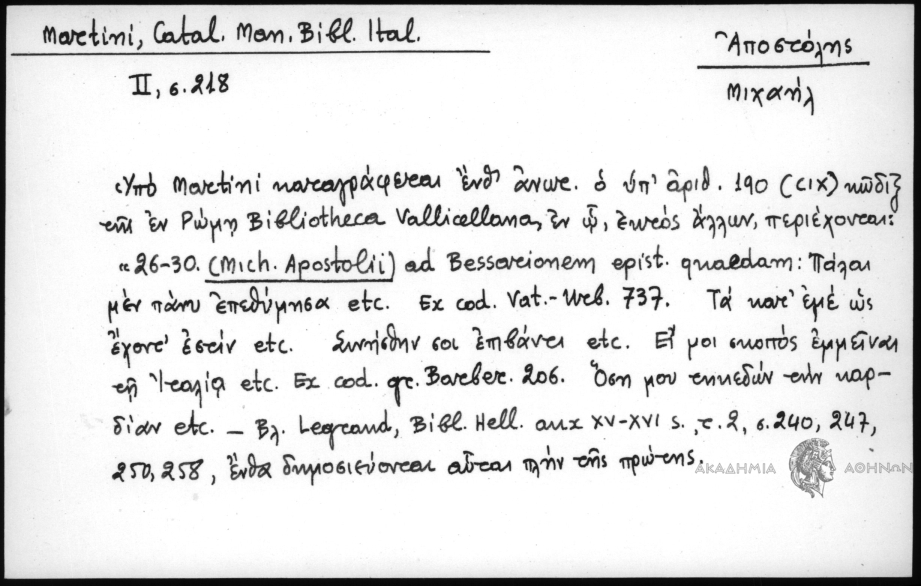 Martini, Catal. Man. Bibl. Ital.
II, σ. 218
Ἀποστόλης
Μιχαήλ
Ὑπό Martini καταγράφεται ἔνθ' ἄνωτ. ὁ ὑπ' ἀριθ. 190 (CIX) κῶδιξ
τῆς ἐν Ρώμῃ Bibliotheca Vallicellana, ἐν ᾧ, ἐκτός ἄλλων, περιέχονται:
« 26-30. (Mich. Apostolii) ad Bessarionem epist. quaedam: Πάλαι
μέν πάνυ ἐπεθύμησα etc. Ex cod. Vat.-Urb. 737. Τά κατ' ἐμέ ὡς
ἔχοντ' ἐστίν etc. Συνήσθην σοι ἐπιβάντι etc. Εἴ μοι σκοπός ἐμμεῖναι
τῇ Ἰταλίᾳ etc. Ex cod. gr. Barber. 206. Ὅση μου τηκεδών τήν καρ-
δίαν etc. — Βλ. Legrand, Bibl. Hell. aux XV-XVI s., τ. 2, σ. 240, 247,
250, 258, ἔνθα δημοσιεύονται αὗται πλήν τῆς πρώτης.
ΑΚΑΔΗΜΙΑ ΑΘΗΝΩΝ